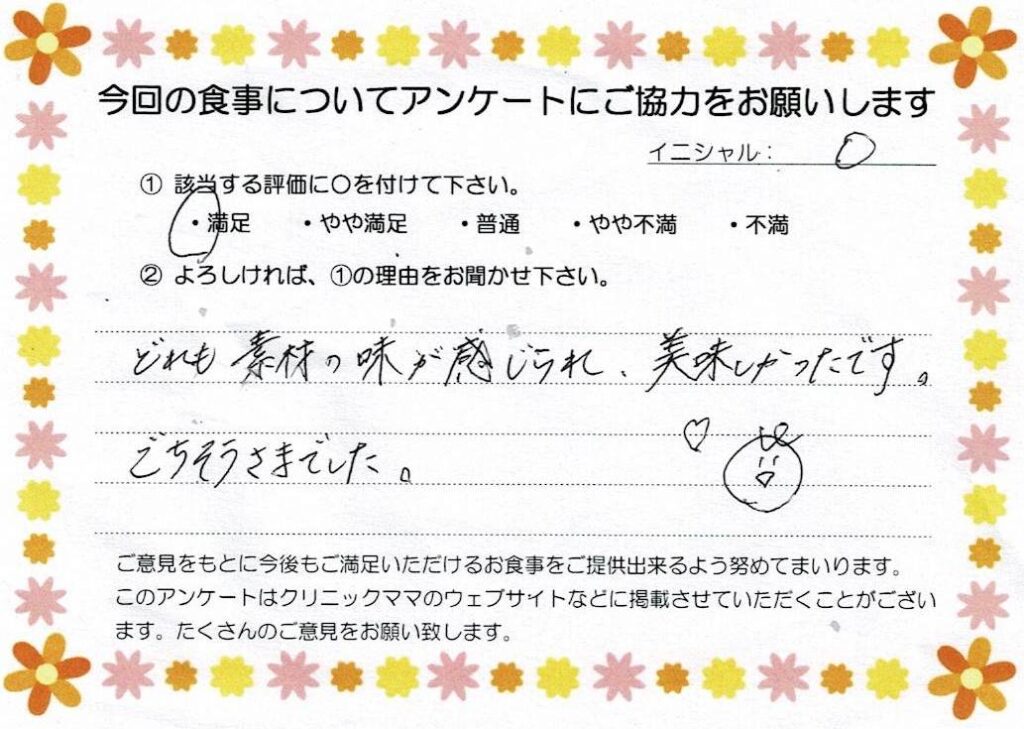 今回の食事についてアンケートにご協力をお願いします
イニシャル： O
① 該当する評価に〇を付けて下さい。
・満足 ・やや満足 ・普通 ・やや不満 ・不満
② よろしければ、①の理由をお聞かせ下さい。
どれも素材の味が感じられ、美味しかったです。
ごちそうさまでした。
ご意見をもとに今後もご満足いただけるお食事をご提供出来るよう努めてまいります。
このアンケートはクリニックママのウェブサイトなどに掲載させていただくことがござい
ます。たくさんのご意見をお願い致します。